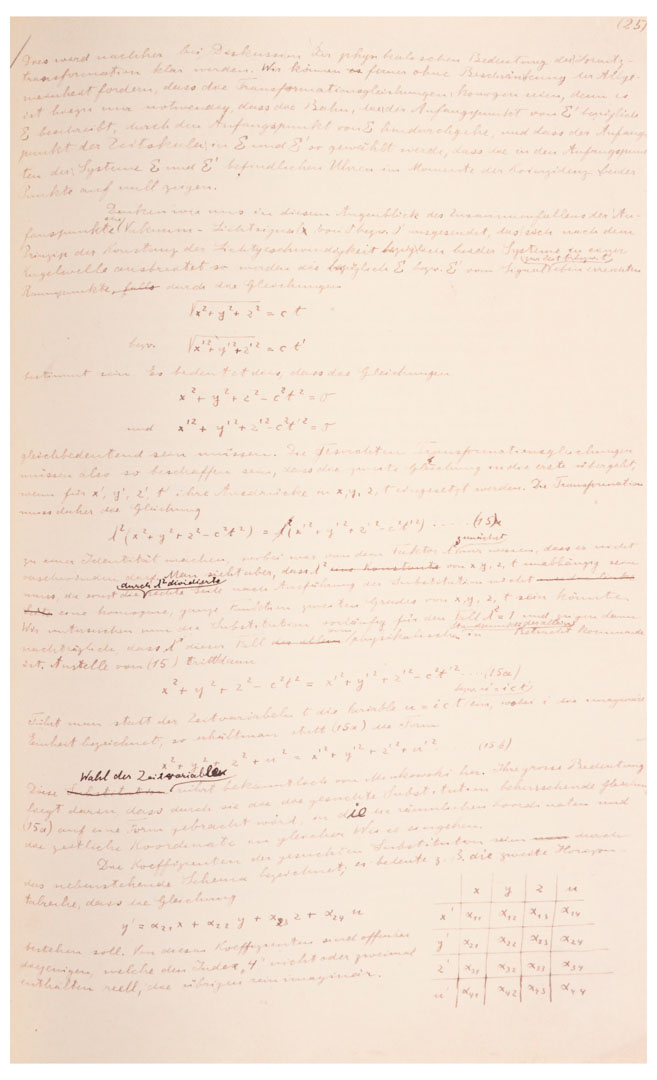 (25)
Dies wird nachher bei Diskussion der physikalischen Bedeutung der
transformation klar werden. Wir können ferner ohne Beschränkung der Allge-
meinheit fordern, dass die Transformationsgleichungen homogen seien, denn es
ist hierzu nur notwendig, dass die Bahn, der Anfangspunkt von Σ' bezüglich
Σ beschreibt, durch den Anfangspunkt von Σ hindurchgehe, und dass der Anfangs-
punkt der Zeitskala in Σ und Σ' so gewählt werde, dass die in den Anfangspunk-
ten der Systeme Σ und Σ' befindlichen Uhren im Momente der Koinzidenz beider
Punkte auf null zeigen.
Denken wir uns in diesem Augenblick des Zusammenfallens der An-
fangspunkte ein Vakuum-Lichtsignal ausgesendet, das sich nach dem
Prinzip der Konstanz der Lichtgeschwindigkeit bezüglich beider Systeme in einer
Kugelwelle ausbreitet so werden die bezüglich Σ bezw. Σ' vom Signal erreichten
zur Zeit t bezw. t'
Raumpunkte, falls durch die Gleichungen
√x²+y²+z² = c t
bezw. √x'²+y'²+z'² = c t'
bestimmt sein. Es bedeutet dies, dass die Gleichungen
x²+y²+z²-c²t²=0
und x'²+y'²+z'²-c²t'²=0
gleichbedeutend sein müssen. Die gesuchten Transformationsgleichungen
müssen also so beschaffen sein, dass die zweite Gleichung in die erste übergeht,
wenn für x', y', z', t' ihre Ausdrücke in x, y, z, t eingesetzt werden. Die Transformation
muss daher die Gleichung
l²(x²+y²+z²-c²t²) = (x'²+y'²+z'²-c²t'²) ..... (15)
zunächst
zu einer Identität machen, wobei wir von dem Faktor wissen, dass er nicht
verschwinden darf. Man sieht aber, dass l² eine Konstante von x, y, z, t unabhängig sein
durch l² dividierte
muss, da sonst die rechte Seite nach Ausführung der Substitution nicht
eine homogene, ganze Funktion zweiten Grades von x, y, z, t sein könnte.
Wir untersuchen nun die Substitution vorläufig für den Fall l²=1 und zeigen dann
nachträglich, dass dieser Fall physikalischen in Betracht kommende
ist. Anstelle von (15) tritt dann
x²+y²+z²-c²t² = x'²+y'²+z'²-c²t'² .... (15a)
Führt man statt der Zeitvariabeln t die Variable u=ict ein, wobei i die imaginäre
Einheit bezeichnet, so erhält man statt (15a) die Form
x²+y²+z²+u² = x'²+y'²+z'²+u'² (15b)
Wahl der Zeitvariablen
Diese rührt bekanntlich von Minkowski her. Ihre grosse Bedeutung
liegt darin, dass durch sie die die gesuchte Substitution beherrschende Gleichung
(15a) auf eine Form gebracht wird, in die die räumlichen Koordinaten und
die zeitliche Koordinate in gleicher Weise eingehen.
Die Koeffizienten der gesuchten Substitution seien durch
das nebenstehende Schema bezeichnet; es bedeute z. B. die zweite Horizon-
talreihe, dass die Gleichung
y' = α₂₁ x + α₂₂ y + α₂₃ z + α₂₄ u
bestehen soll. Von diesen Koeffizienten sind offenbar
diejenigen, welche den Index „4" nicht oder zweimal
enthalten reell, die übrigen rein imaginär.
x y z u
x' α₁₁ α₁₂ α₁₃ α₁₄
y' α₂₁ α₂₂ α₂₃ α₂₄
z' α₃₁ α₃₂ α₃₃ α₃₄
u' α₄₁ α₄₂ α₄₃ α₄₄